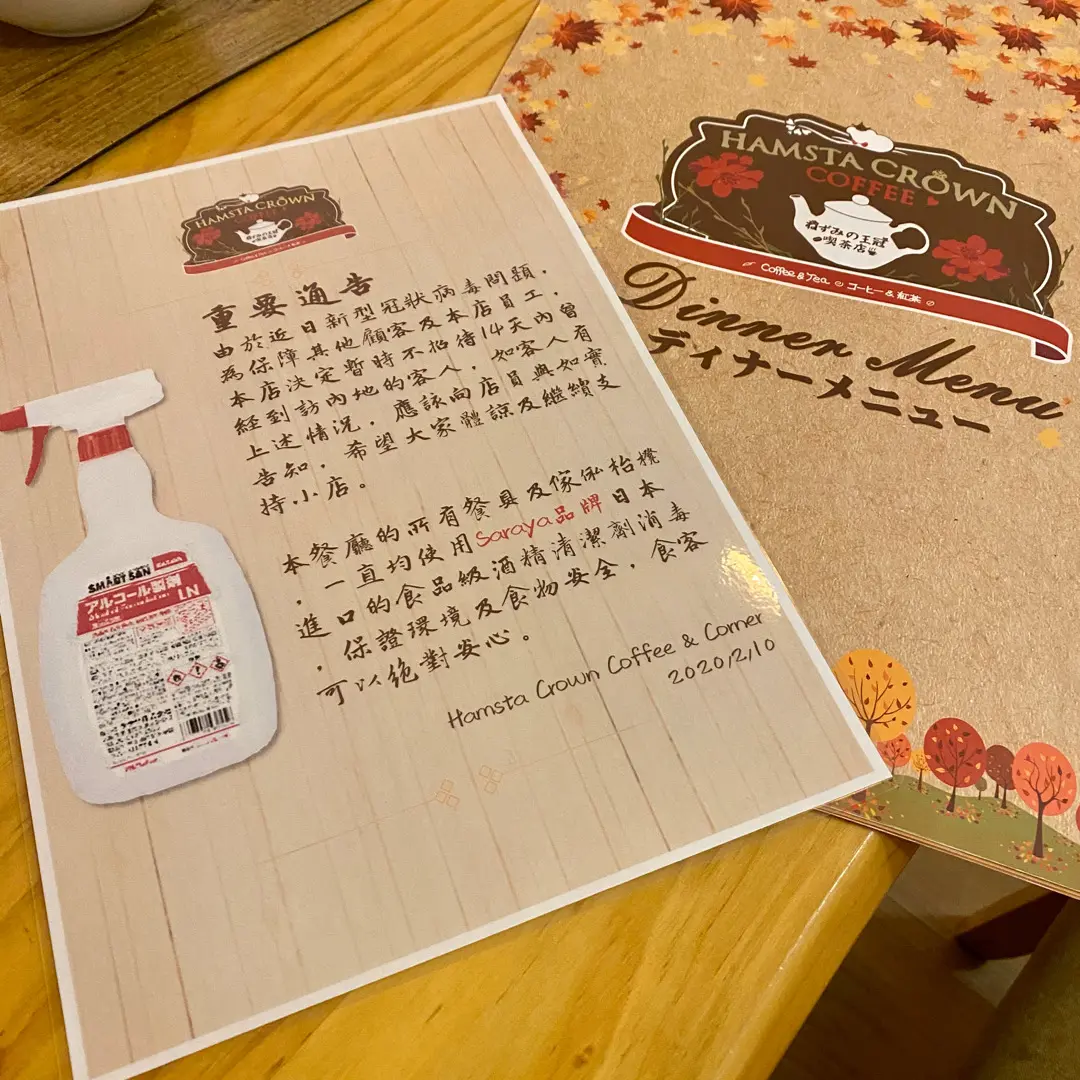 HAMSTA CROWN
COFFEE
ねずみの王冠
喫茶店
Coffee & Tea
重要通告
由於近日新型冠狀病毒問題，
為保障其他顧客及本店員工，
本店決定暫時不招待14天內曾
經到訪內地的客人，如客人有
上述情況，應該向店員與如實
告知，希望大家體諒及繼續支
持小店。
本餐廳的所有餐具及傢俬枱櫈
，一直均使用Saraya品牌日本
進口的食品級酒精清潔劑消毒
，保證環境及食物安全，食客
可以絕對安心。
Hamsta Crown Coffee & Corner
2020/2/10
SMART SAN
アルコール製剤
LN
HAMSTA CROWN
COFFEE
ねずみの王冠
喫茶店
Coffee & Tea コーヒー & 紅茶
Dinner Menu
ディナーメニュー